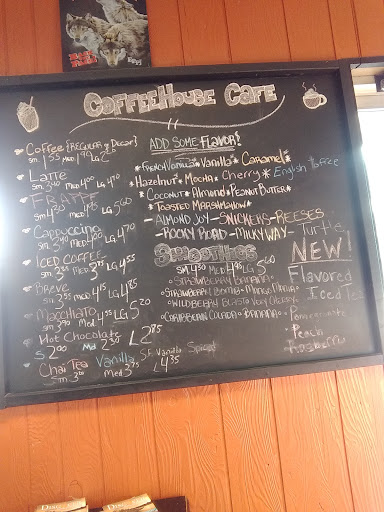 COFFEEHOUSE CAFE
Coffee {REGULAR or DECAF}
SM. 1.55 MED 1.90 LG 2.
LATTE
SM. 3.40 MED 4.00 LG 4.70
FRAPPE
SM 4.20 MED 4.85 LG 5.60
Cappuccino
SM. 3.40 MED 4.00 LG 4.70
ICED COFFEE
MED 3.75 LG 4.55
Breve
SM. 3.55 MED 4.15 LG 4.85
MACCHIATO
SM. 3.90 MED 4.55 LG 5.20
Hot Chocolate
S 2.00 Md 2.50 L 2.85
Chai Tea Vanilla S.F. Vanilla Spiced
SM. Med 3.75 L 4.35
ADD SOME FLAVOR!
*FRENCH VANILLA*Vanilla*Caramel*
*Hazelnut*MOCHA*Cherry*English toffee
*COCONUT*ALMOND*PEANUT BUTTER*
*TOASTED MARSHMALLOW
-ALMOND JOY-SNICKERS-REESES
-ROCKY ROAD-MILKY WAY-Turtle
SMOOTHIES
SM 4.30 MED 4.95 LG 5.60
•STRAWBERRY BANANA•
•STRAWBERRY BOMB•MANGO MANIA•
•WILDBERRY BLAST•VERY CHERRY•
•CARIBBEAN COLADA•BANANA•
NEW!
Flavored
Iced Tea
Pomegranate
Peach
Raspberry